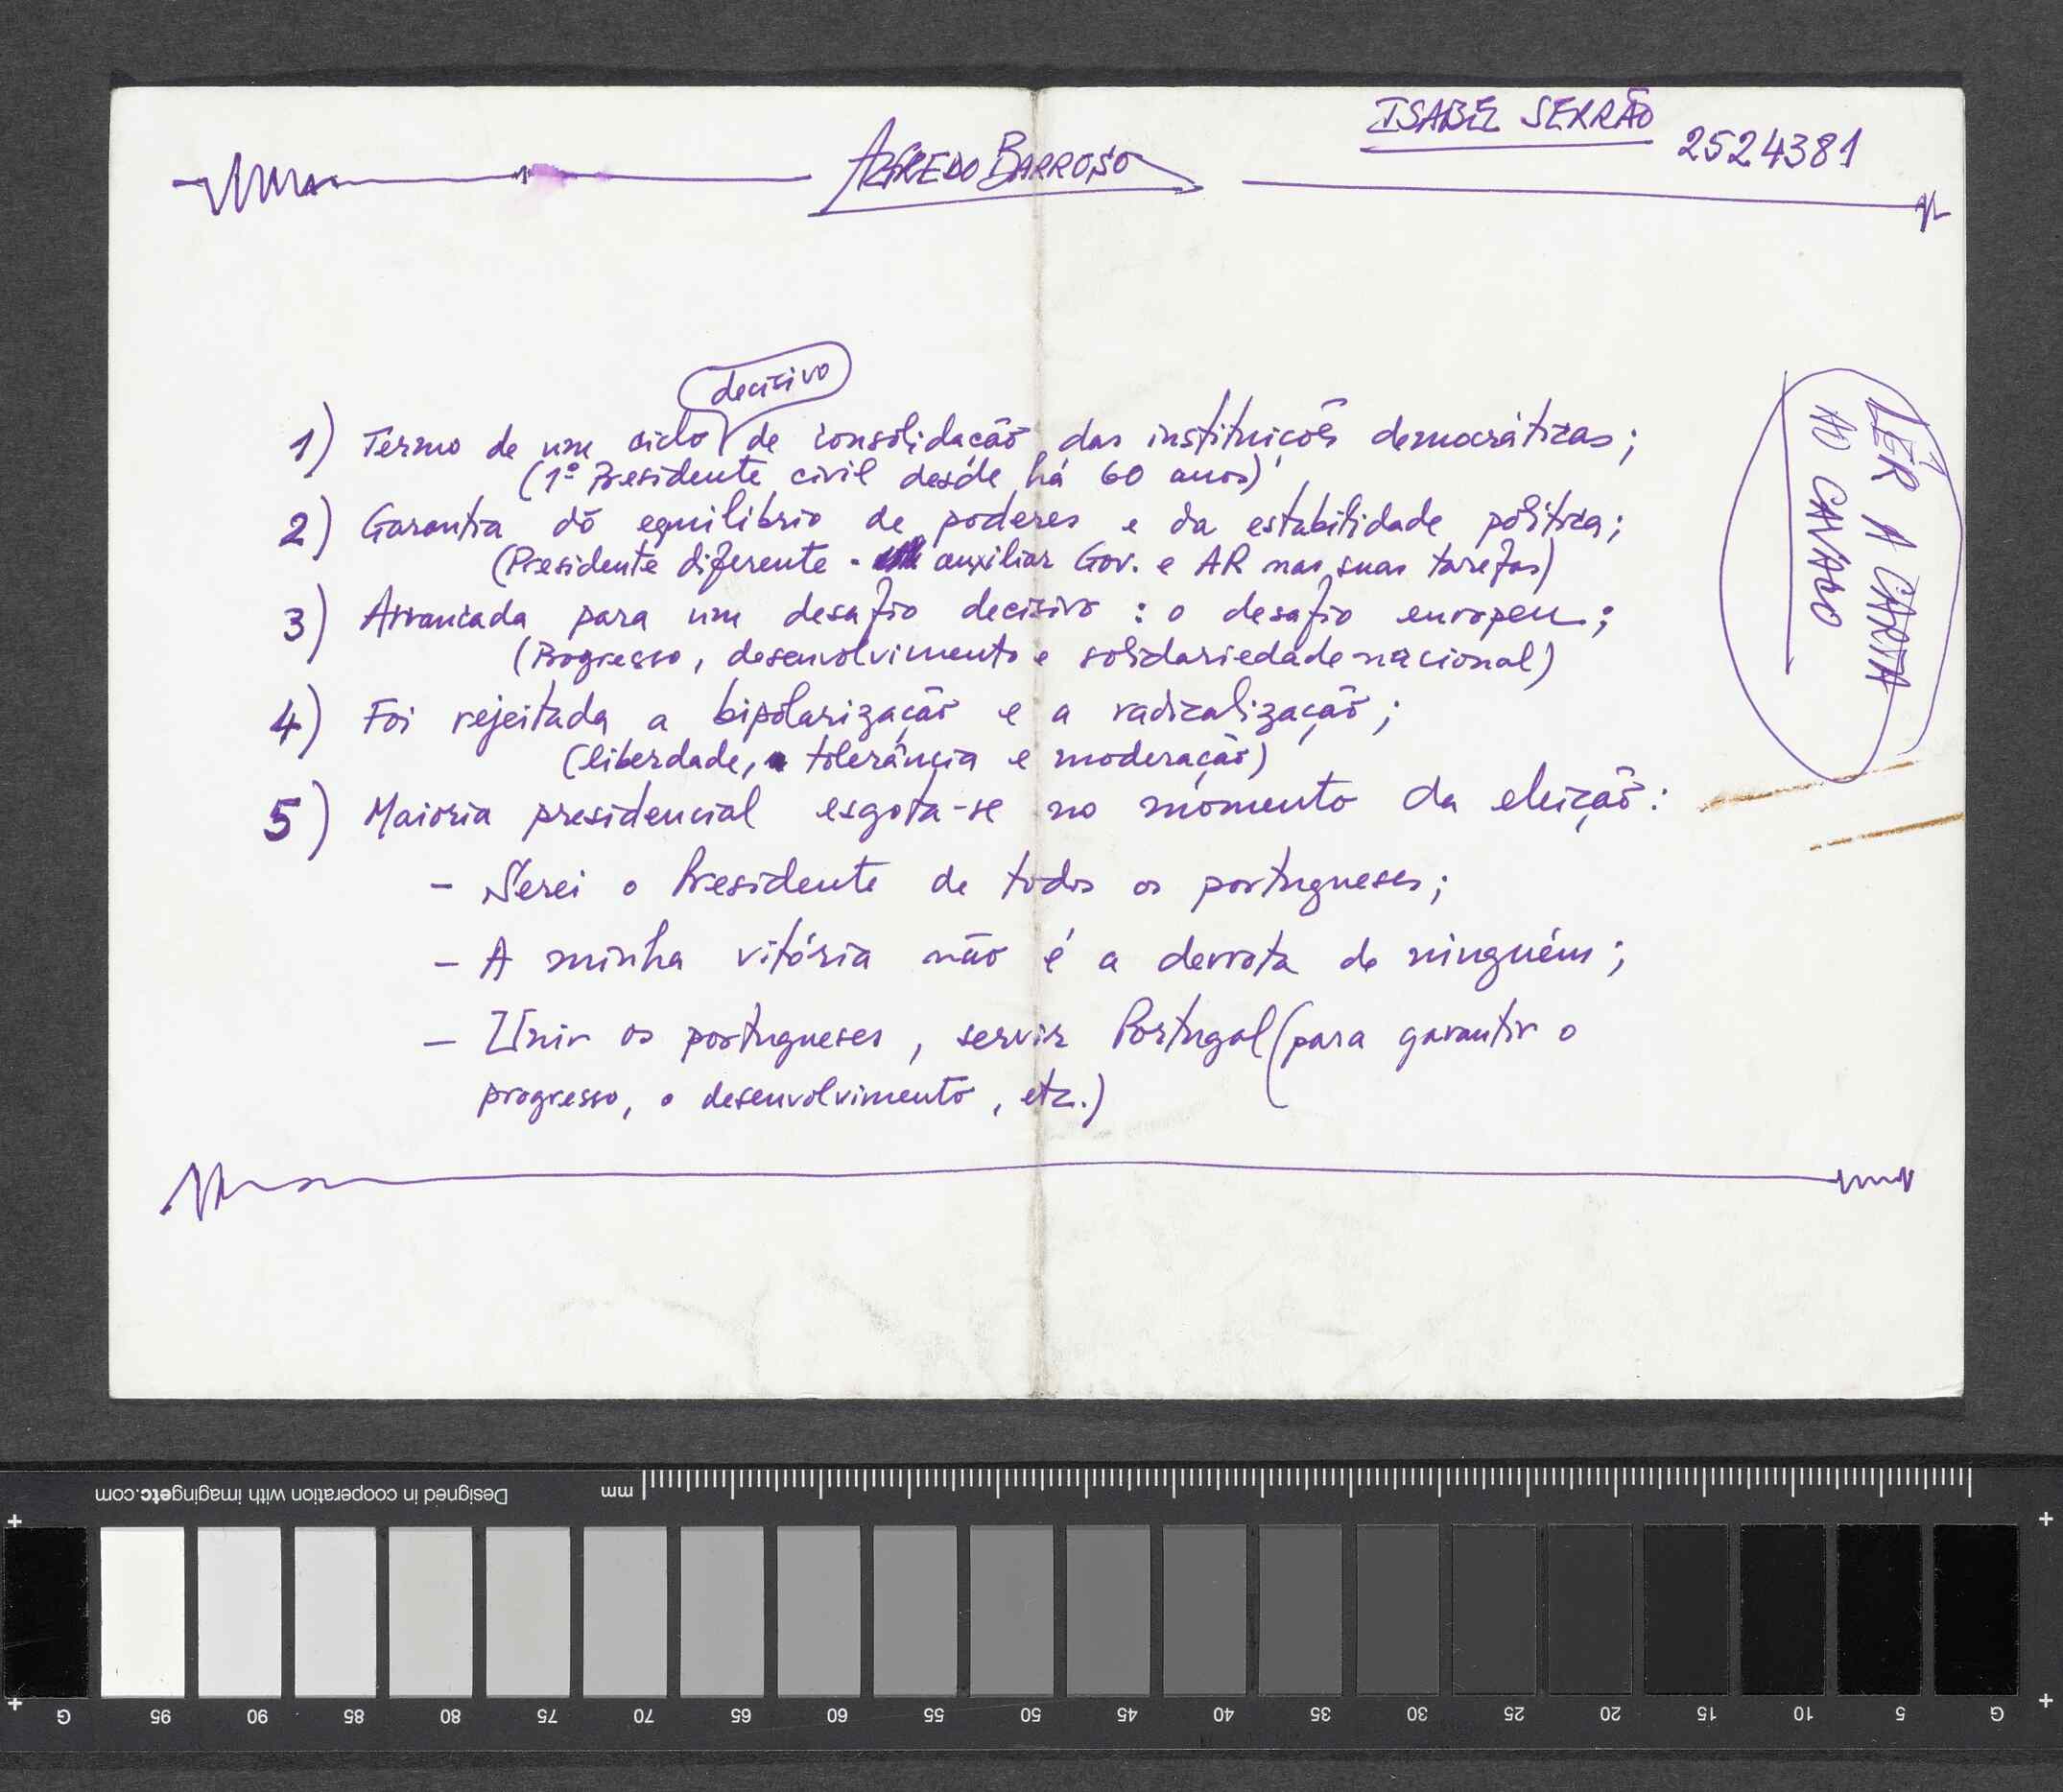 ISABEL SERRÃO
2524381
ALFREDO BARROSO
decisivo
1) Termo de um ciclo de consolidação das instituições democráticas;
(1º Presidente civil desde há 60 anos)
2) Garantia do equilibrio de poderes e da estabilidade política;
(Presidente diferente - auxiliar Gov. e AR nas suas tarefas)
3) Arrancada para um desafio decisivo: o desafio europeu;
(Progresso, desenvolvimento e solidariedade nacional)
4) Foi rejeitada a bipolarização e a radicalização;
(liberdade, tolerância e moderação)
5) Maioria presidencial esgota-se no momento da eleição:
- Serei o Presidente de todos os portugueses;
- A minha vitória não é a derrota de ninguém;
- Unir os portugueses, servir Portugal (para garantir o
progresso, o desenvolvimento, etc.)
LÊR A CARTA
AO CAVACO
Designed in cooperation with imagingetc.com
mm
G 95 90 85 80 75 70 65 60 55 50 45 40 35 30 25 20 15 10 5 G